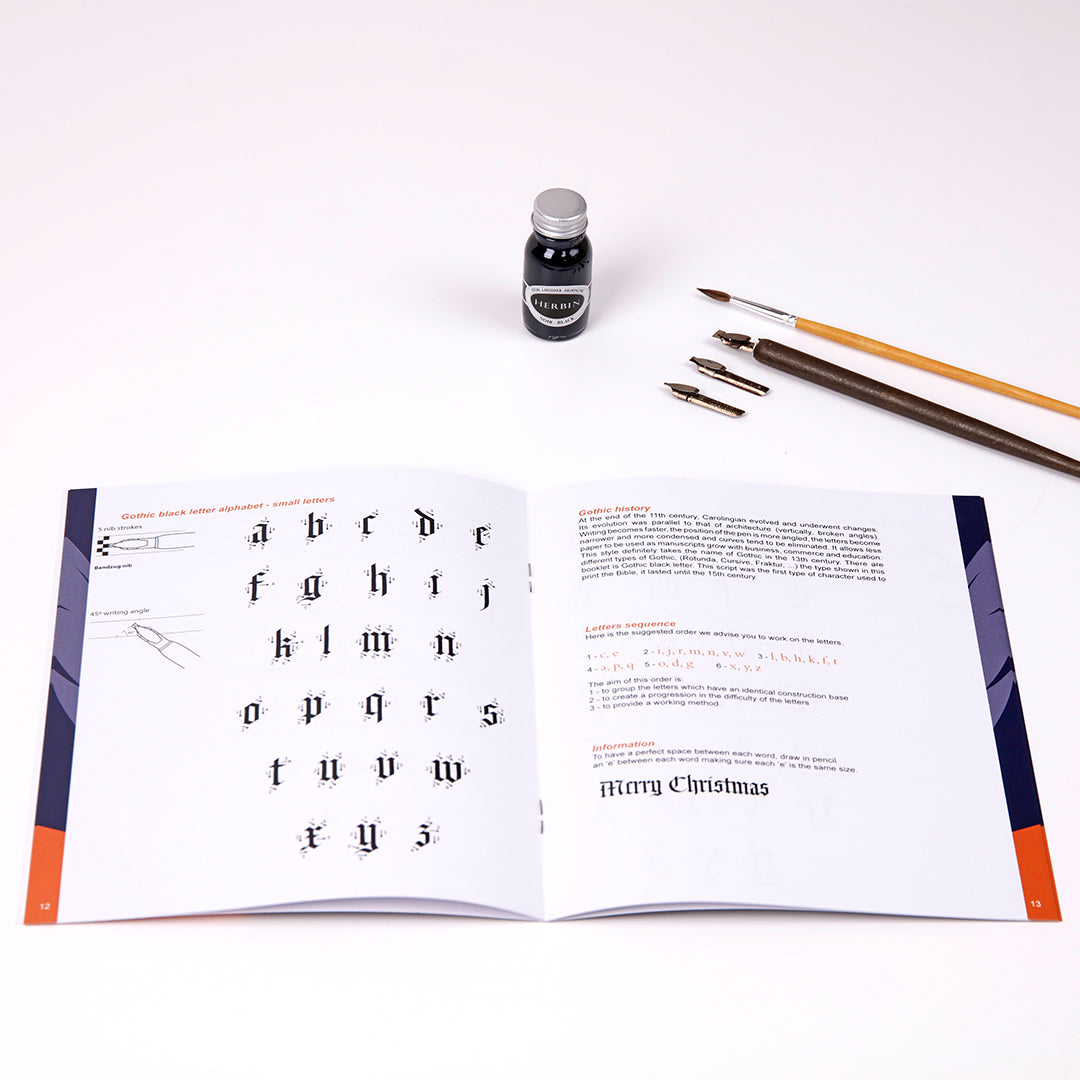 J. HERBIN
NOIR - BLACK
Gothic black letter alphabet - small letters
5 nib strokes
Bandzug nib
45º writing angle
a b c d e
f g h i j
k l m n
o p q r s
t u v w
x y z
12
Gothic history
At the end of the 11th century, Carolingian evolved and underwent changes.
Its evolution was parallel to that of architecture (vertically, broken angles).
Writing becomes faster, the position of the pen is more angled, the letters become
narrower and more condensed and curves tend to be eliminated. It allows less
paper to be used as manuscripts grow with business, commerce and education.
This style definitely takes the name of Gothic in the 13th century. There are
different types of Gothic, (Rotunda, Cursive, Fraktur, ...) the type shown in this
booklet is Gothic black letter. This script was the first type of character used to
print the Bible, it lasted until the 15th century.
Letters sequence
Here is the suggested order we advise you to work on the letters.
1 - c, e 2 - i, j, r, m, n, v, w 3 - l, b, h, k, f, t
4 - a, p, q 5 - o, d, g 6 - x, y, z
The aim of this order is:
1 - to group the letters which have an identical construction base
2 - to create a progression in the difficulty of the letters
3 - to provide a working method.
Information
To have a perfect space between each word, draw in pencil
an 'e' between each word making sure each 'e' is the same size.
Merry Christmas
13